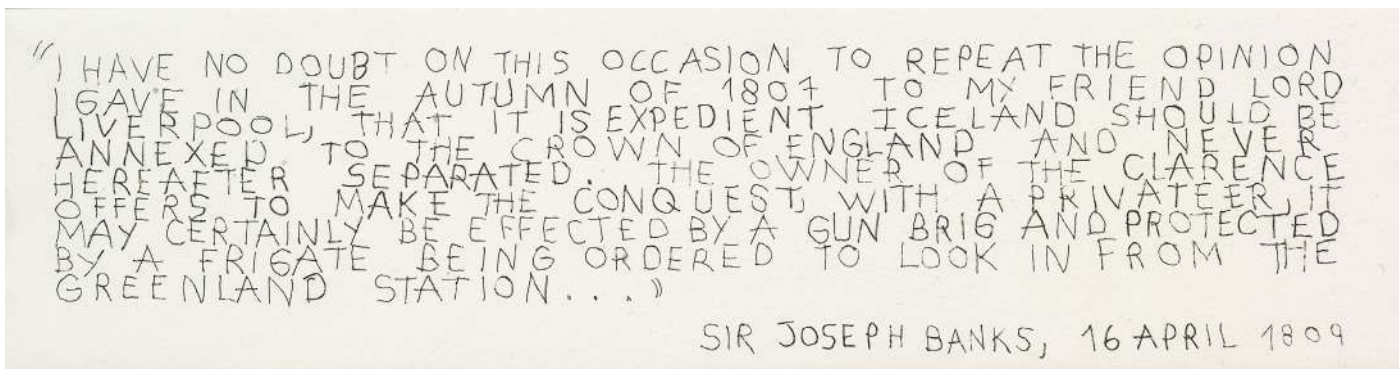 "I HAVE NO DOUBT ON THIS OCCASION TO REPEAT THE OPINION
I GAVE IN THE AUTUMN OF 1807 TO MY FRIEND LORD
LIVERPOOL, THAT IT IS EXPEDIENT ICELAND SHOULD BE
ANNEXED TO THE CROWN OF ENGLAND AND NEVER
HEREAFTER SEPARATED. THE OWNER OF THE CLARENCE
OFFERS TO MAKE THE CONQUEST, WITH A PRIVATEER, IT
MAY CERTAINLY BE EFFECTED BY A GUN BRIG AND PROTECTED
BY A FRIGATE BEING ORDERED TO LOOK IN FROM THE
GREENLAND STATION..."
SIR JOSEPH BANKS, 16 APRIL 1809